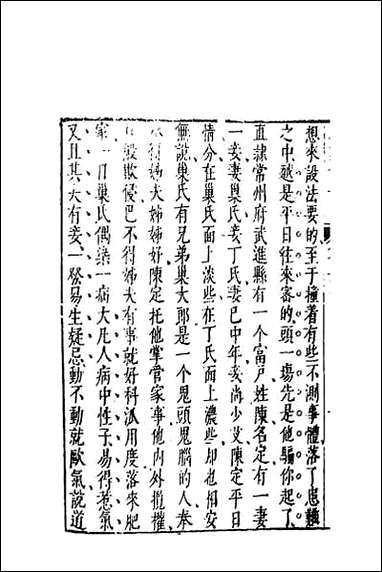 想來設法要的至于撞着有些不測事體落了患難
之中越是平日往來密的頭一塲先是他騙你起了
直隷常州府武進縣有一个富戶姓陳名定有一妻
一妾妻巢氏妾丁氏妻已中年妾尚少艾陳定平日
情分在巢氏面上淡些在丁氏面上濃些却也相安
無說巢氏有兄弟巢大郎是一个鬼頭鬼腦的人奉
承得姊夫姊姊好陳定托他掌管家事他內外攬權
百般欺侵巴不得姊夫有事就好科派用度落來肥
家一日巢氏偶染一病大凡人病中性子易得惹氣
又且其夫有妾一發易生疑忌動不動就歐氣說道